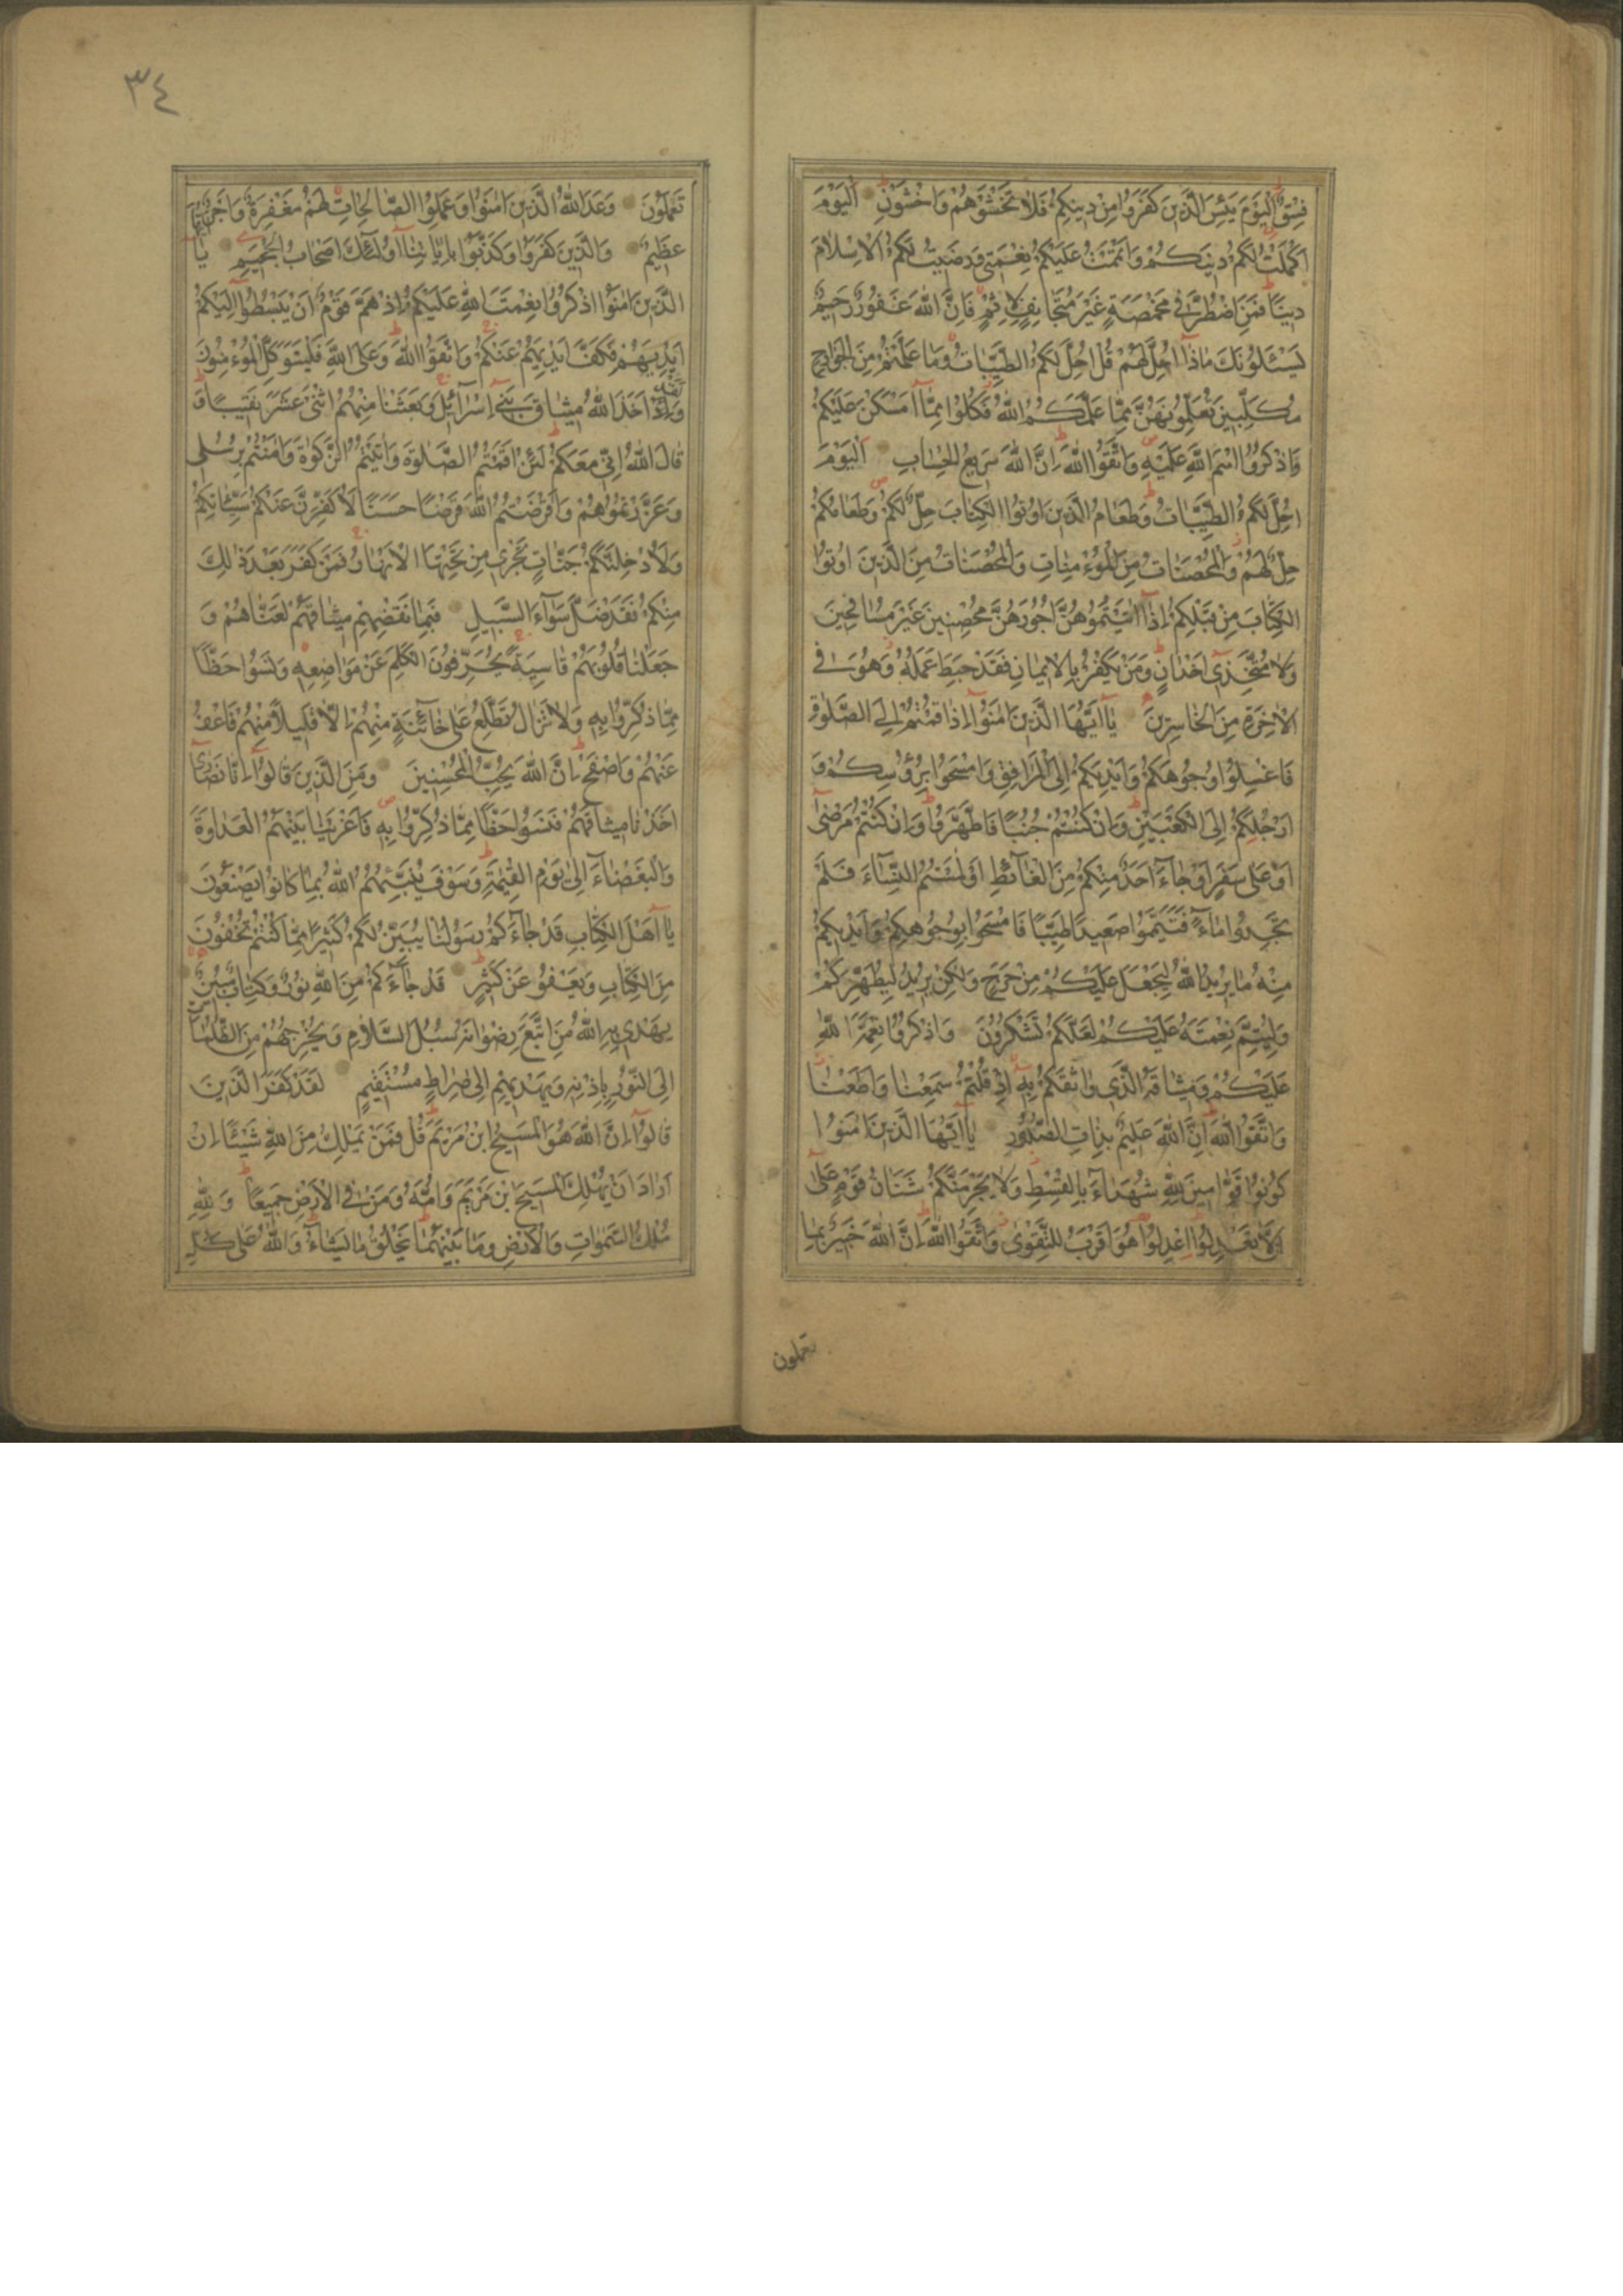 فِسْقٌ اَلْيَوْمَ يَئِسَ الَّذِينَ كَفَرُوا مِنْ دِينِكُمْ فَلَا تَخْشَوْهُمْ وَاخْشَوْنِ اَلْيَوْمَ
اَكْمَلْتُ لَكُمْ دِينَكُمْ وَاَتْمَمْتُ عَلَيْكُمْ نِعْمَتِى وَرَضِيتُ لَكُمُ الْاِسْلَامَ
دِينًا فَمَنِ اضْطُرَّ فِى مَخْمَصَةٍ غَيْرَ مُتَجَانِفٍ لِاِثْمٍ فَاِنَّ اللّٰهَ غَفُورٌ رَحِيمٌ
يَسْئَلُونَكَ مَاذَا اُحِلَّ لَهُمْ قُلْ اُحِلَّ لَكُمُ الطَّيِّبَاتُ وَمَا عَلَّمْتُمْ مِنَ الْجَوَارِحِ
مُكَلِّبِينَ تُعَلِّمُونَهُنَّ مِمَّا عَلَّمَكُمُ اللّٰهُ فَكُلُوا مِمَّا اَمْسَكْنَ عَلَيْكُمْ
وَاذْكُرُوا اسْمَ اللّٰهِ عَلَيْهِ وَاتَّقُوا اللّٰهَ اِنَّ اللّٰهَ سَرِيعُ الْحِسَابِ اَلْيَوْمَ
اُحِلَّ لَكُمُ الطَّيِّبَاتُ وَطَعَامُ الَّذِينَ اُوتُوا الْكِتَابَ حِلٌّ لَكُمْ وَطَعَامُكُمْ
حِلٌّ لَهُمْ وَالْمُحْصَنَاتُ مِنَ الْمُؤْمِنَاتِ وَالْمُحْصَنَاتُ مِنَ الَّذِينَ اُوتُوا
الْكِتَابَ مِنْ قَبْلِكُمْ اِذَا اٰتَيْتُمُوهُنَّ اُجُورَهُنَّ مُحْصِنِينَ غَيْرَ مُسَافِحِينَ
وَلَا مُتَّخِذِى اَخْدَانٍ وَمَنْ يَكْفُرْ بِالْاِيمَانِ فَقَدْ حَبِطَ عَمَلُهُ وَهُوَ فِى
الْاٰخِرَةِ مِنَ الْخَاسِرِينَ يَا اَيُّهَا الَّذِينَ اٰمَنُوا اِذَا قُمْتُمْ اِلَى الصَّلٰوةِ
فَاغْسِلُوا وُجُوهَكُمْ وَاَيْدِيَكُمْ اِلَى الْمَرَافِقِ وَامْسَحُوا بِرُؤُسِكُمْ وَ
اَرْجُلَكُمْ اِلَى الْكَعْبَيْنِ وَاِنْ كُنْتُمْ جُنُبًا فَاطَّهَّرُوا وَاِنْ كُنْتُمْ مَرْضٰى
اَوْ عَلٰى سَفَرٍ اَوْ جَاءَ اَحَدٌ مِنْكُمْ مِنَ الْغَائِطِ اَوْ لٰمَسْتُمُ النِّسَاءَ فَلَمْ
تَجِدُوا مَاءً فَتَيَمَّمُوا صَعِيدًا طَيِّبًا فَامْسَحُوا بِوُجُوهِكُمْ وَاَيْدِيكُمْ
مِنْهُ مَا يُرِيدُ اللّٰهُ لِيَجْعَلَ عَلَيْكُمْ مِنْ حَرَجٍ وَلٰكِنْ يُرِيدُ لِيُطَهِّرَكُمْ
وَلِيُتِمَّ نِعْمَتَهُ عَلَيْكُمْ لَعَلَّكُمْ تَشْكُرُونَ وَاذْكُرُوا نِعْمَةَ اللّٰهِ
عَلَيْكُمْ وَمِيثَاقَهُ الَّذِى وَاثَقَكُمْ بِهِ اِذْ قُلْتُمْ سَمِعْنَا وَاَطَعْنَا
وَاتَّقُوا اللّٰهَ اِنَّ اللّٰهَ عَلِيمٌ بِذَاتِ الصُّدُورِ يَا اَيُّهَا الَّذِينَ اٰمَنُوا
كُونُوا قَوَّامِينَ لِلّٰهِ شُهَدَاءَ بِالْقِسْطِ وَلَا يَجْرِمَنَّكُمْ شَنَاٰنُ قَوْمٍ عَلٰى
اَلَّا تَعْدِلُوا اِعْدِلُوا هُوَ اَقْرَبُ لِلتَّقْوٰى وَاتَّقُوا اللّٰهَ اِنَّ اللّٰهَ خَبِيرٌ بِمَا
تعملون
٣٤
تَعْمَلُونَ وَعَدَ اللّٰهُ الَّذِينَ اٰمَنُوا وَعَمِلُوا الصَّالِحَاتِ لَهُمْ مَغْفِرَةٌ وَاَجْرٌ
عَظِيمٌ وَالَّذِينَ كَفَرُوا وَكَذَّبُوا بِاٰيَاتِنَا اُولٰئِكَ اَصْحَابُ الْجَحِيمِ يَا اَيُّهَا
الَّذِينَ اٰمَنُوا اذْكُرُوا نِعْمَتَ اللّٰهِ عَلَيْكُمْ اِذْ هَمَّ قَوْمٌ اَنْ يَبْسُطُوا اِلَيْكُمْ
اَيْدِيَهُمْ فَكَفَّ اَيْدِيَهُمْ عَنْكُمْ وَاتَّقُوا اللّٰهَ وَعَلَى اللّٰهِ فَلْيَتَوَكَّلِ الْمُؤْمِنُونَ
وَلَقَدْ اَخَذَ اللّٰهُ مِيثَاقَ بَنِى اِسْرَائِلَ وَبَعَثْنَا مِنْهُمُ اثْنَىْ عَشَرَ نَقِيبًا وَ
قَالَ اللّٰهُ اِنِّى مَعَكُمْ لَئِنْ اَقَمْتُمُ الصَّلٰوةَ وَاٰتَيْتُمُ الزَّكٰوةَ وَاٰمَنْتُمْ بِرُسُلِى
وَعَزَّرْتُمُوهُمْ وَاَقْرَضْتُمُ اللّٰهَ قَرْضًا حَسَنًا لَاُكَفِّرَنَّ عَنْكُمْ سَيِّئَاتِكُمْ
وَلَاُدْخِلَنَّكُمْ جَنَّاتٍ تَجْرِى مِنْ تَحْتِهَا الْاَنْهَارُ فَمَنْ كَفَرَ بَعْدَ ذٰلِكَ
مِنْكُمْ فَقَدْ ضَلَّ سَوَاءَ السَّبِيلِ فَبِمَا نَقْضِهِمْ مِيثَاقَهُمْ لَعَنَّاهُمْ وَ
جَعَلْنَا قُلُوبَهُمْ قَاسِيَةً يُحَرِّفُونَ الْكَلِمَ عَنْ مَوَاضِعِهِ وَنَسُوا حَظًّا
مِمَّا ذُكِّرُوا بِهِ وَلَا تَزَالُ تَطَّلِعُ عَلٰى خَائِنَةٍ مِنْهُمْ اِلَّا قَلِيلًا مِنْهُمْ فَاعْفُ
عَنْهُمْ وَاصْفَحْ اِنَّ اللّٰهَ يُحِبُّ الْمُحْسِنِينَ وَمِنَ الَّذِينَ قَالُوا اِنَّا نَصَارٰى
اَخَذْنَا مِيثَاقَهُمْ فَنَسُوا حَظًّا مِمَّا ذُكِّرُوا بِهِ فَاَغْرَيْنَا بَيْنَهُمُ الْعَدَاوَةَ
وَالْبَغْضَاءَ اِلٰى يَوْمِ الْقِيٰمَةِ وَسَوْفَ يُنَبِّئُهُمُ اللّٰهُ بِمَا كَانُوا يَصْنَعُونَ
يَا اَهْلَ الْكِتَابِ قَدْ جَاءَكُمْ رَسُولُنَا يُبَيِّنُ لَكُمْ كَثِيرًا مِمَّا كُنْتُمْ تُخْفُونَ
مِنَ الْكِتَابِ وَيَعْفُو عَنْ كَثِيرٍ قَدْ جَاءَكُمْ مِنَ اللّٰهِ نُورٌ وَكِتَابٌ مُبِينٌ
يَهْدِى بِهِ اللّٰهُ مَنِ اتَّبَعَ رِضْوَانَهُ سُبُلَ السَّلَامِ وَيُخْرِجُهُمْ مِنَ الظُّلُمَاتِ
اِلَى النُّورِ بِاِذْنِهِ وَيَهْدِيهِمْ اِلٰى صِرَاطٍ مُسْتَقِيمٍ لَقَدْ كَفَرَ الَّذِينَ
قَالُوا اِنَّ اللّٰهَ هُوَ الْمَسِيحُ ابْنُ مَرْيَمَ قُلْ فَمَنْ يَمْلِكُ مِنَ اللّٰهِ شَيْئًا اِنْ
اَرَادَ اَنْ يُهْلِكَ الْمَسِيحَ ابْنَ مَرْيَمَ وَاُمَّهُ وَمَنْ فِى الْاَرْضِ جَمِيعًا وَلِلّٰهِ
مُلْكُ السَّمٰوَاتِ وَالْاَرْضِ وَمَا بَيْنَهُمَا يَخْلُقُ مَا يَشَاءُ وَاللّٰهُ عَلٰى كُلِّ